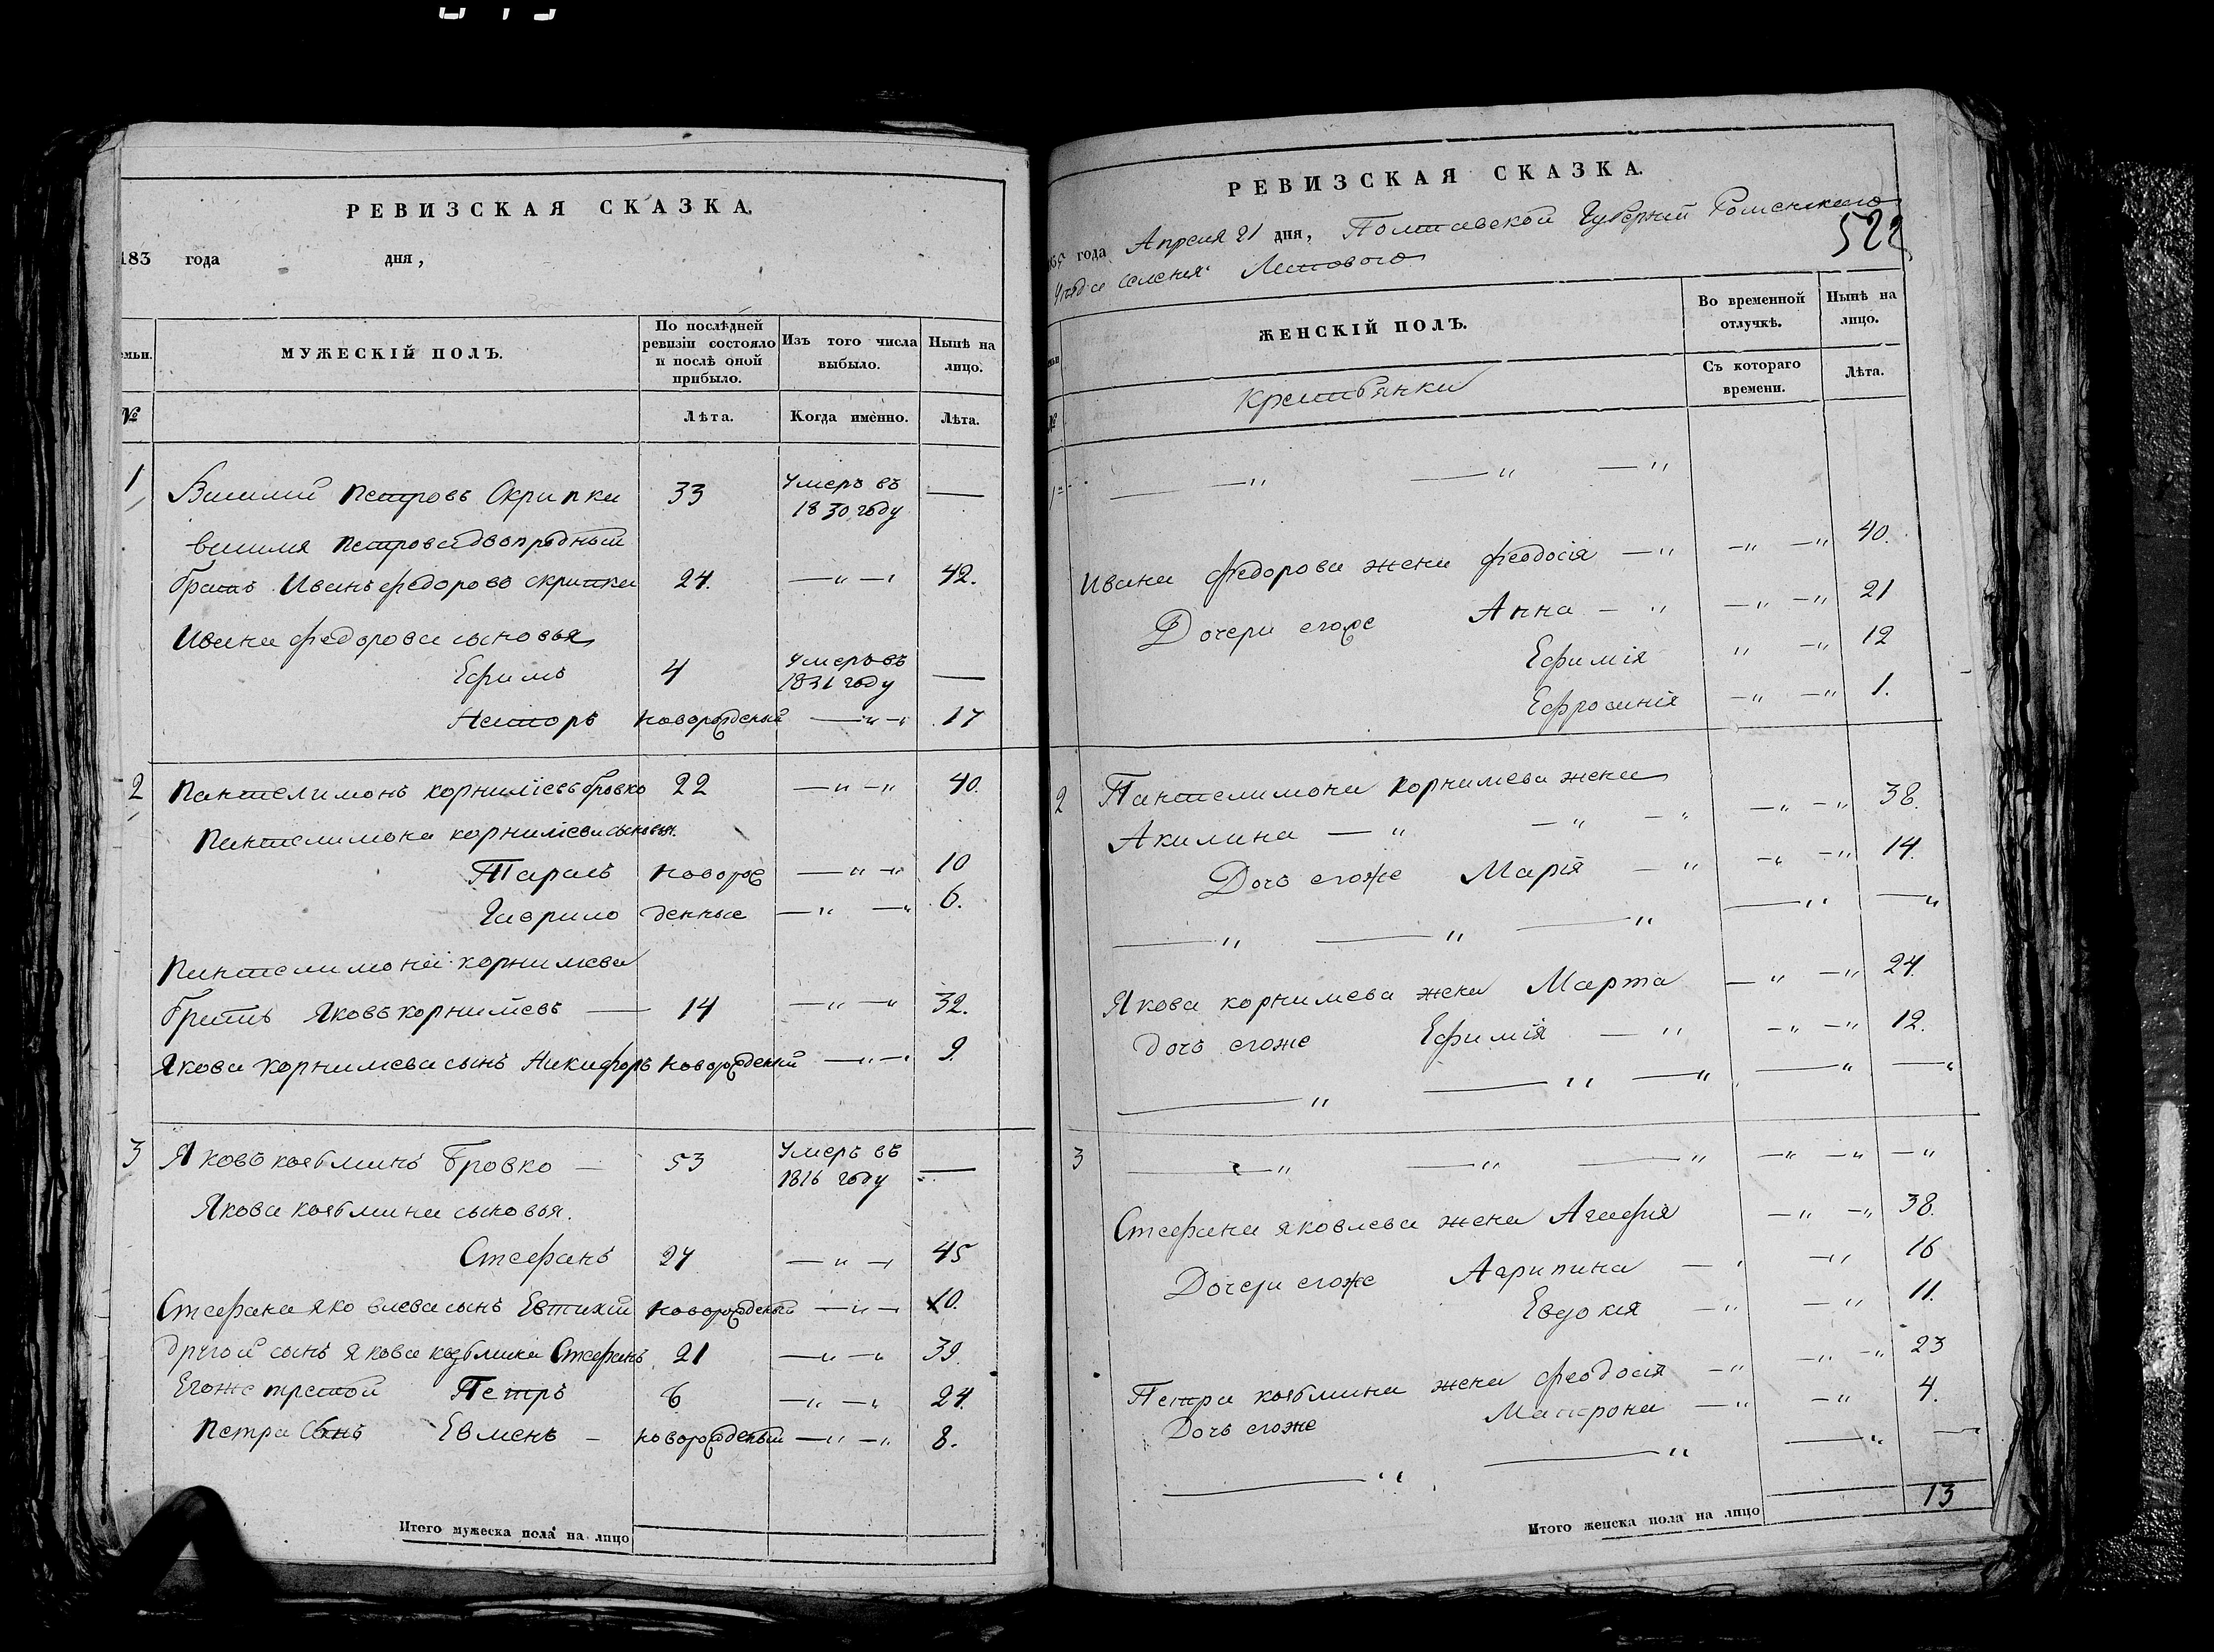 РЕВИЗСКАЯ СКАЗКА,
183 года дня,
МУЖЕСКІЙ ПОЛЪ.
По послѣдней ревизіи состояло и послѣ оной прибыло.
Изъ того числа выбыло.
Нынѣ на лицо.
№
Лѣта.
Когда именно.
Лѣта.
1 Василий Петровъ Скрипка 33 Умеръ въ 1830 году —
Василия Петрова двопродный
братъ Иванъ Федоровъ скрипка 24. —"— 42.
Ивана федорова сыновья
Ефимъ 4 Умеръ въ 1831 году —
Несторъ новорожденый —"— 17
2 Пантелимонъ корниліевъ бровко 22 —"—" 40.
Пантелимона корнилиева сыновья.
Тарасъ новорож —"—" 10
Гаврило денные —"—" 6.
Пантелимона корнилиева
братъ Яковъ корнилиевъ — 14 —"—" 32.
Якова корнилиева сынъ Никифоръ новорожденый —"— 9
3 Яковъ козьминъ Бровко — 53 Умеръ въ 1816 году —
Якова козьмина сыновья.
Стефанъ 27 —"— 45
Стефана яковлева сынъ Евтихий новорожденый —"— 10.
другой сынъ якова козьмина Стефанъ 21 —"—" 39.
Егоже третий Петръ 6 —"—" 24.
Петра Сынъ Евменъ — новорожденый —"—" 8.
Итого мужеска пола на лицо
РЕВИЗСКАЯ СКАЗКА.
года Апреля 21 дня, Полтавской Губернии Роменского
522
Уезда селения Липового
ЖЕНСКІЙ ПОЛЪ.
Во временной отлучкѣ.
Нынѣ на лицо.
№
Крестьянки
Съ котораго времени.
Лѣта.
1 —" —" —"
Ивана Федорова жена Феодосія —" —" —" 40.
Дочери егоже Анна —" —" —" 21
Ефимія " —" 12
Ефросинія —" —" 1.
2 Пантелимона Корнилиева жена
Акилина —" —" —" —" —" 38.
Дочь егоже Марія —" —" —" 14.
—" —" —" —" —"
Якова корнилиева жена Марта —" —" 24.
дочь егоже Ефимія —" —" —" 12.
—" —" —" —" —"
3 —" —" —" —" —" —"
Стефана яковлева жена Агафія —" —" 38.
Дочери егоже Агрипина —" —" 16
Евдокія —" —" 11.
Петра козьмина жена Феодосія —" —" —" 23
Дочь егоже Матрона —" —" 4.
—" —" —" —
Итого женска пола на лицо 13